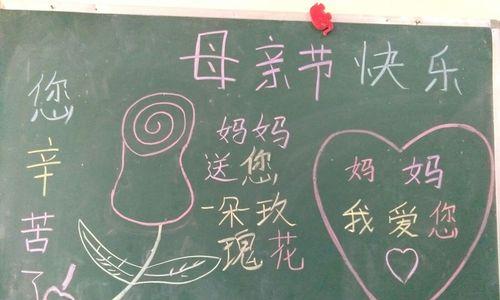 母亲节快乐
您辛苦了
妈妈
送您
一朵玫
瑰花
妈妈
我爱您